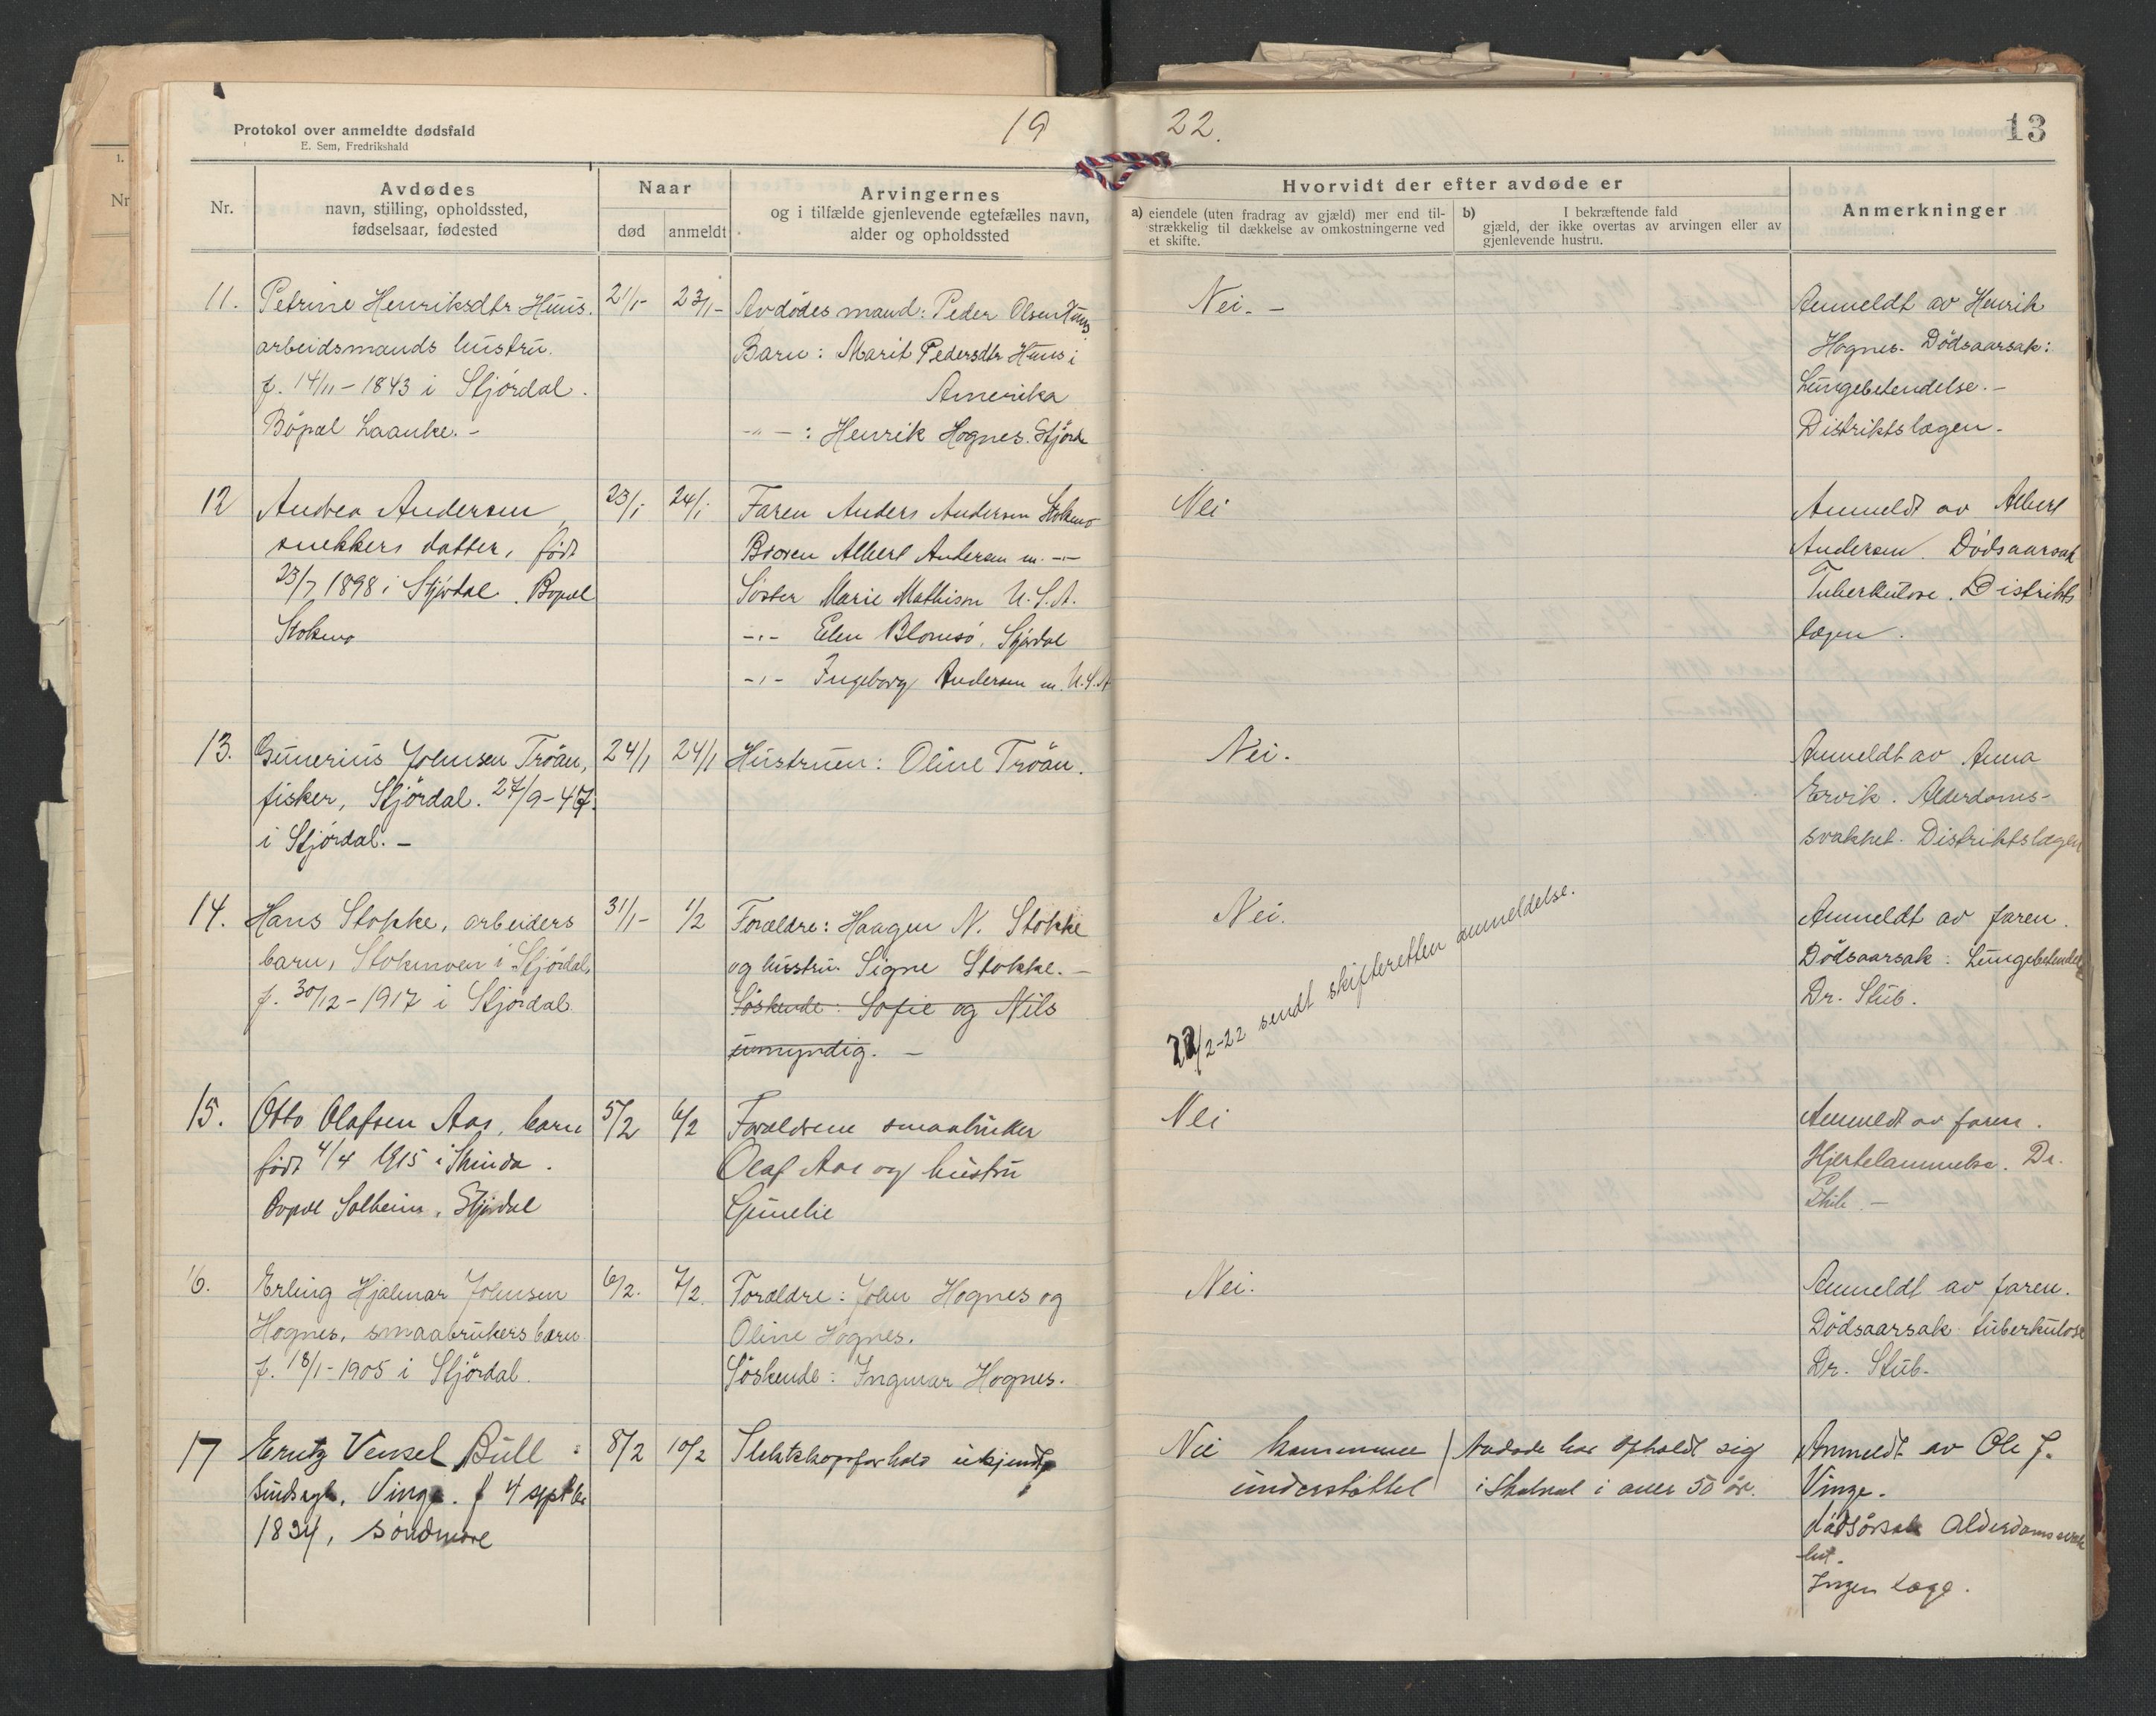 Protokol over anmeldte dødsfald
E. Sem, Fredrikshald
19
22.
13
Nr.
Avdødes
navn, stilling, opholdssted,
fødselsaar, fødested
Naar
død
anmeldt
Arvingernes
og i tilfælde gjenlevende egtefælles navn,
alder og opholdssted
Hvorvidt der efter avdøde er
a) eiendele (uten fradrag av gjæld) mer end til-
strækkelig til dækkelse av omkostningerne ved
et skifte.
b) I bekræftende fald
gjæld, der ikke overtas av arvingen eller av
gjenlevende hustru.
Anmerkninger
11.
Petrine Henriksdtr Huus.
arbeidsmands hustru.
f. 14/11-1843 i Stjørdal.
Bopæl Laanke.-
21/1-
23/1-
Avdødes mand: Peder Olsen Huus
Barn: Marit Pedersdtr Huus i
Amerika
-"- : Henrik Hognes. Stjørd
Nei. -
Anmeldt av Henrik
Hognes. Dødsaarsak:
Lungebetendelse.-
Distriktslægen.
12
Andrea Andersen
snekkers datter, født
23/7 1898 i Stjørdal. Bopæl
Stokmo
23/1
24/1
Faren Anders Andersen Stokmo
Broren Albert Andersen m. -"-
Søster Marie Mathisen U.S.A.
-"- Elen Blomsø, Stjørdal
-"- Ingeborg Andersen m. U.S.A
Nei
Anmeldt av Albert
Andersen. Dødsaarsak
Tuberkulose. Distrikts
lægen.
13.
Gunerius Johnsen Trøan,
fisker, Stjørdal. 27/9-47.
i Stjørdal. -
24/1
24/1
Hustruen: Oline Trøan.
Nei.
Anmeldt av Anna
Ervik. Alderdoms-
svakhet. Distriktslægen
14.
Hans Stokke, arbeiders
barn, Stokmoen i Stjørdal,
f. 30/12-1917 i Stjørdal
31/1-
1/2
Forældre: Haagen N. Stokke
og hustru Signe Stokke. -
Søskende: Sofie og Nils
umyndig. -
Nei.
22/2-22 sendt skifteretten anmeldelse.
Anmeldt av faren.
Dødsaarsak: Lungebetendelse
Dr. Stub.
15.
Otto Olafsen Aas, barn
født 4/4 1915 i Strinda.
Bopæl Solheim, Stjørdal
5/2
6/2
Forældrene smaabruker
Olaf Aas og hustru
Gunelie
Nei
Anmeldt av faren.
Hjertelammelse. Dr.
Stub. -
16.
Erling Hjalmar Johnsen
Hognes, smaabrukers barn
f. 18/1-1905 i Stjørdal.
6/2.
7/2.
Forældre: John Hognes og
Oline Hognes.
Søskende: Ingmar Hognes.
Nei.
Anmeldt av faren.
Dødsaarsak tuberkulose
Dr. Stub.
17
Vensel Büll
Vinge. f 4 septbr
1834, Søndmøre
8/2
10/2
Slektskapsforhold ukjendt
Nei kommune
understøttet
Avdøde har opholdt sig
i Skatval i over 50 år.
Anmeldt av Ole J.
Vinge.
dødsårsak Alderdomssvak
het.
Ingen læge.